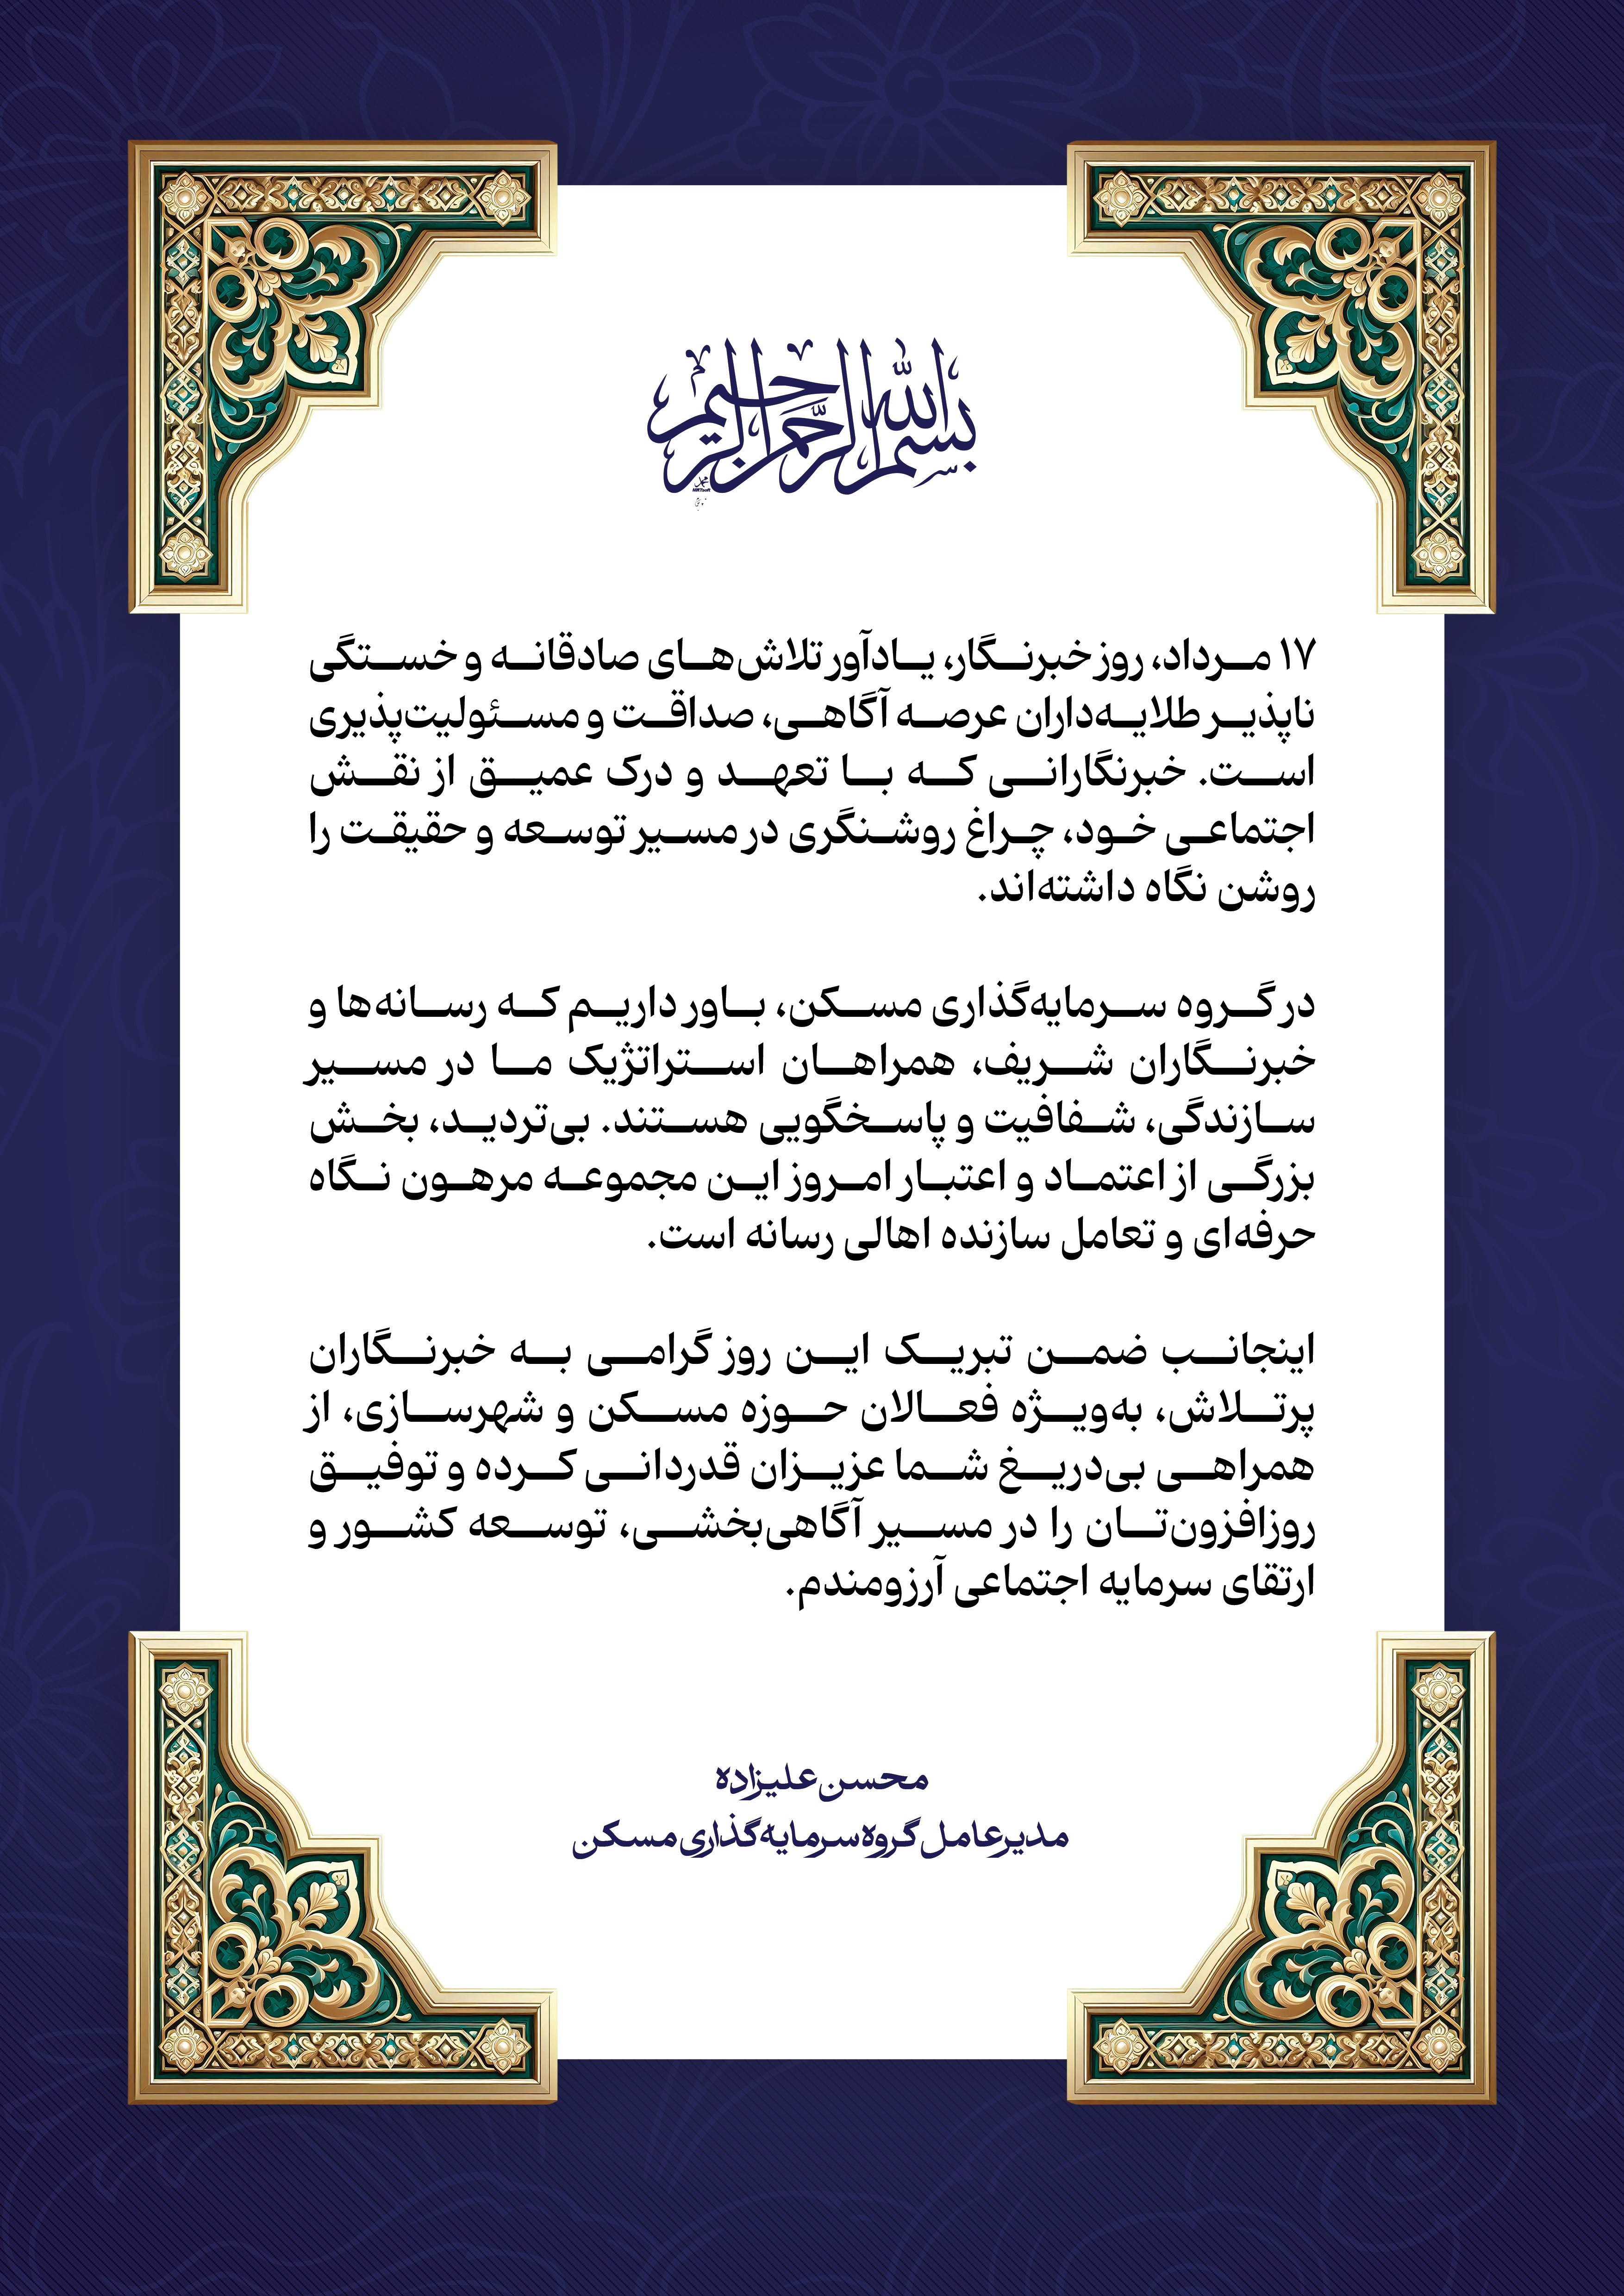 بسم الله الرحمن الرحیم
۱۷ مرداد، روز خبرنگار، یادآور تلاش‌های صادقانه و خستگی
ناپذیر طلایه‌داران عرصه آگاهی، صداقت و مسئولیت‌پذیری
است. خبرنگارانی که با تعهد و درک عمیق از نقش
اجتماعی خود، چراغ روشنگری در مسیر توسعه و حقیقت را
روشن نگاه داشته‌اند.
در گروه سرمایه‌گذاری مسکن، باور داریم که رسانه‌ها و
خبرنگاران شریف، همراهان استراتژیک ما در مسیر
سازندگی، شفافیت و پاسخگویی هستند. بی‌تردید، بخش
بزرگی از اعتماد و اعتبار امروز این مجموعه مرهون نگاه
حرفه‌ای و تعامل سازنده اهالی رسانه است.
اینجانب ضمن تبریک این روز گرامی به خبرنگاران
پرتلاش، به‌ویژه فعالان حوزه مسکن و شهرسازی، از
همراهی بی‌دریغ شما عزیزان قدردانی کرده و توفیق
روزافزون‌تان را در مسیر آگاهی‌بخشی، توسعه کشور و
ارتقای سرمایه اجتماعی آرزومندم.
محسن علیزاده
مدیرعامل گروه سرمایه‌گذاری مسکن